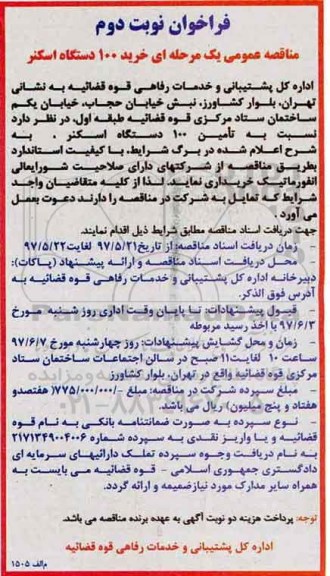 فراخوان نوبت دوم
مناقصه عمومی یک مرحله ای خرید ۱۰۰ دستگاه اسکنر
اداره کل پشتیبانی و خدمات رفاهی قوه قضائیه به نشانی
تهران، بلوار کشاورز، نبش خیابان حجاب، خیابان یکم
ساختمان ستاد مرکزی قوه قضائیه طبقه اول، در نظر دارد
نسبت به تأمین ۱۰۰ دستگاه اسکنر . به
شرح اعلام شده در برگ شرایط، با کیفیت استاندارد
بطریق مناقصه از شرکتهای دارای صلاحیت شورایعالی
انفورماتیک خریداری نماید. لذا از کلیه متقاضیان واجد
شرایط که تمایل به شرکت در مناقصه را دارند دعوت بعمل
می آورد .
جهت دریافت اسناد مناقصه مطابق شرایط ذیل اقدام نمایند.
- زمان دریافت اسناد مناقصه: از تاریخ ۹۷/۵/۲۱ لغایت ۹۷/۵/۲۲
- محل دریافت اسناد مناقصه و ارائه پیشنهاد (پاکات):
دبیرخانه اداره کل پشتیبانی و خدمات رفاهی قوه قضائیه به
آدرس فوق الذکر.
- قبول پیشنهادات: تا پایان وقت اداری روز شنبه مورخ
۹۷/۶/۳ با اخذ رسید مربوطه
- زمان و محل گشایش پیشنهادات: روز چهارشنبه مورخ ۹۷/۶/۷
ساعت ۱۰ لغایت ۱۱ صبح در سالن اجتماعات ساختمان ستاد
مرکزی قوه قضائیه واقع در تهران، بلوار کشاورز
- مبلغ سپرده شرکت در مناقصه: مبلغ -/۷۷۵/۰۰۰/۰۰۰( هفتصدو
هفتاد و پنج میلیون) ریال می باشد.
- نوع سپرده به صورت ضمانتنامه بانکی به نام قوه
قضائیه و یا واریز نقدی به سپرده شماره ۲۱۷۱۳۴۹۰۰۴۰۰۶
به نام دریافت وجوه سپرده تملک دارائیهای سرمایه ای
دادگستری جمهوری اسلامی - قوه قضائیه می بایست به
همراه سایر مدارک مورد نیاز ضمیمه و ارائه گردد.
توجه: پرداخت هزینه دو نوبت آگهی به عهده برنده مناقصه می باشد.
اداره کل پشتیبانی و خدمات رفاهی قوه قضائیه
م‌الف ۱۵۰۵